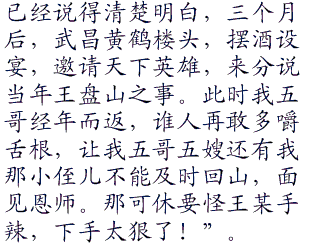 已经说得清楚明白，三个月
后，武昌黄鹤楼头，摆酒设
宴，邀请天下英雄，来分说
当年王盘山之事。此时我五
哥经年而返，谁人再敢多嚼
舌根，让我五哥五嫂还有我
那小侄儿不能及时回山，面
见恩师。那可休要怪王某手
辣，下手太狠了！”。